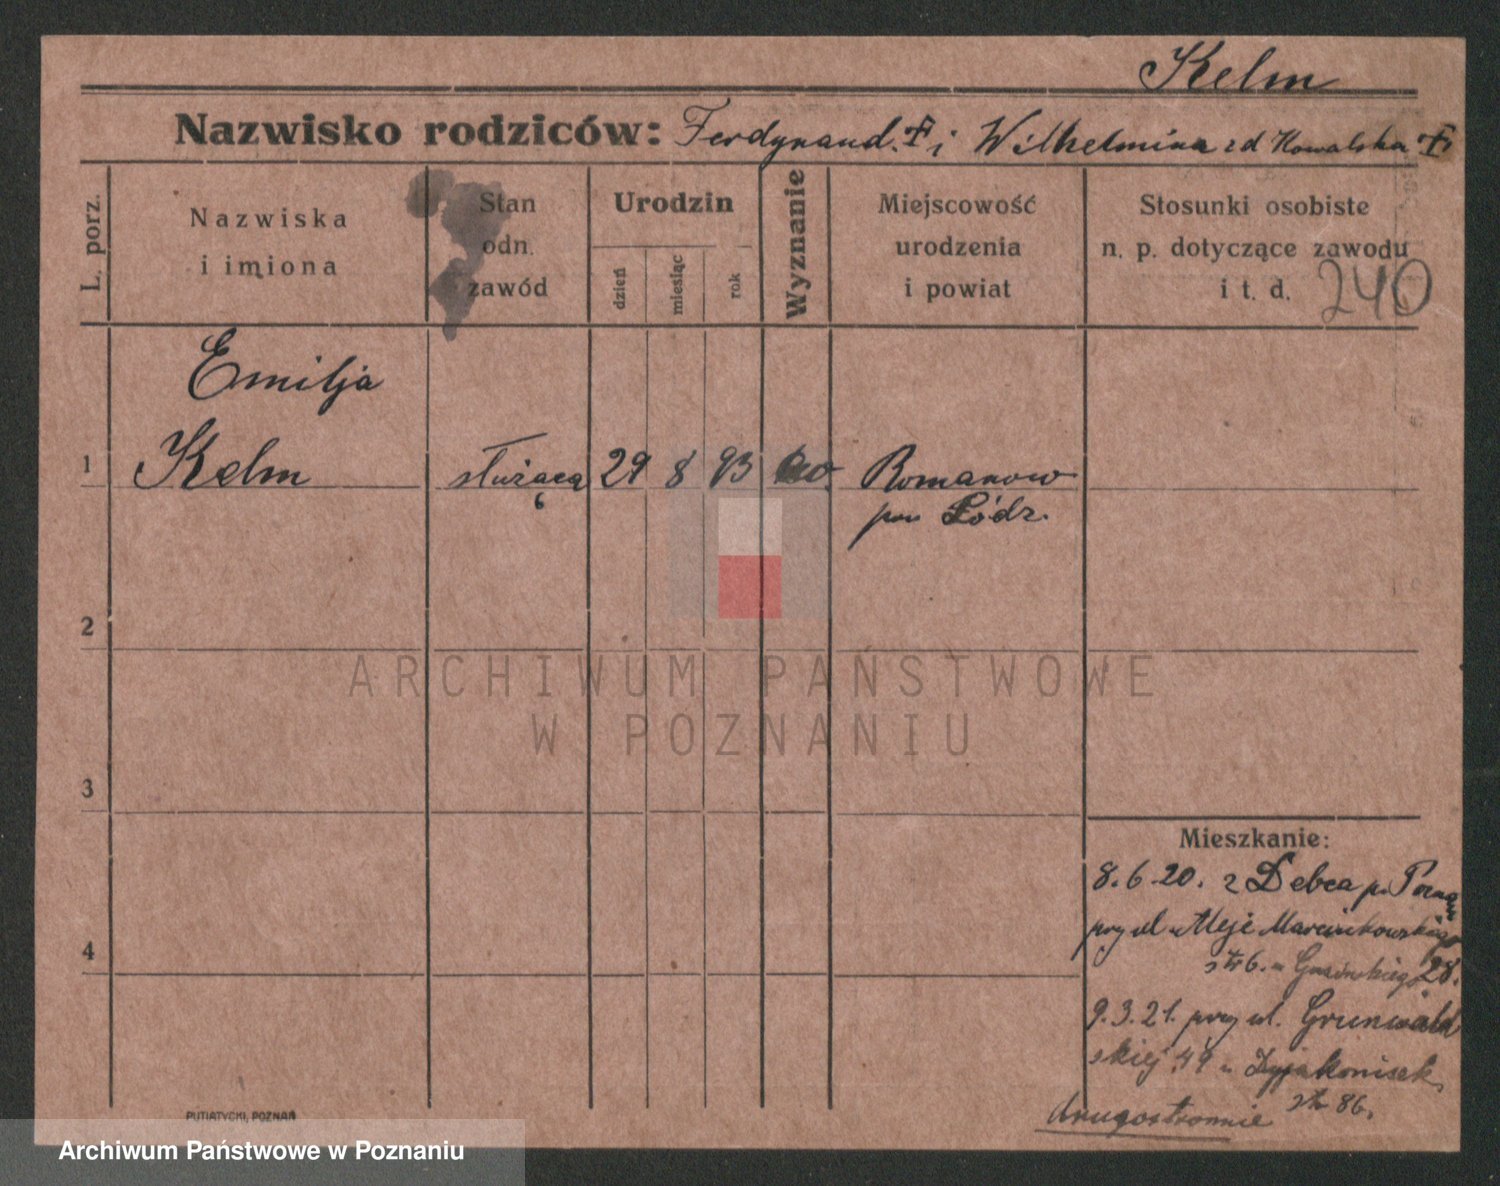 Kelm
Nazwisko rodziców: Ferdynand i Wilhelmina zd Kowalska
L. porz.
Nazwiska
i imiona
Stan
odn.
zawód
Urodzin
dzień
miesiąc
rok
Wyznanie
Miejscowość
urodzenia
i powiat
Stosunki osobiste
n. p. dotyczące zawodu
i t. d.
240
Emilja
1 Kelm służąca 29 8 93 Romanow
pow Łódz.
2
3
4
ARCHIWUM PAŃSTWOWE
W POZNANIU
Mieszkanie:
8.6.20. z Debca p. Poznań
przy ul Aleje Marcinkowskiego
28.
9.3.21. przy ul. Grunwald
skiej 49 u Dyjakonisek
str 86.
drugostronnie
PUTIATYCKI, POZNAŃ
Archiwum Państwowe w Poznaniu